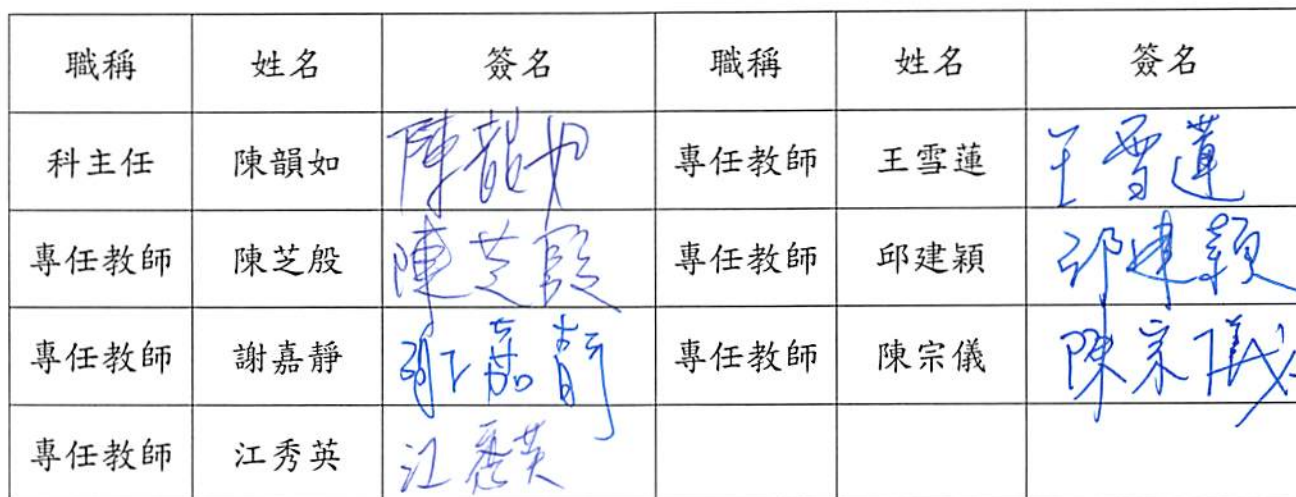 職稱 姓名 簽名 職稱 姓名 簽名
科主任 陳韻如 陳韻如 專任教師 王雪蓮 王雪蓮
專任教師 陳芝殷 陳芝殷 專任教師 邱建穎 邱建穎
專任教師 謝嘉靜 謝嘉靜 專任教師 陳宗儀 陳宗儀
專任教師 江秀英 江秀英